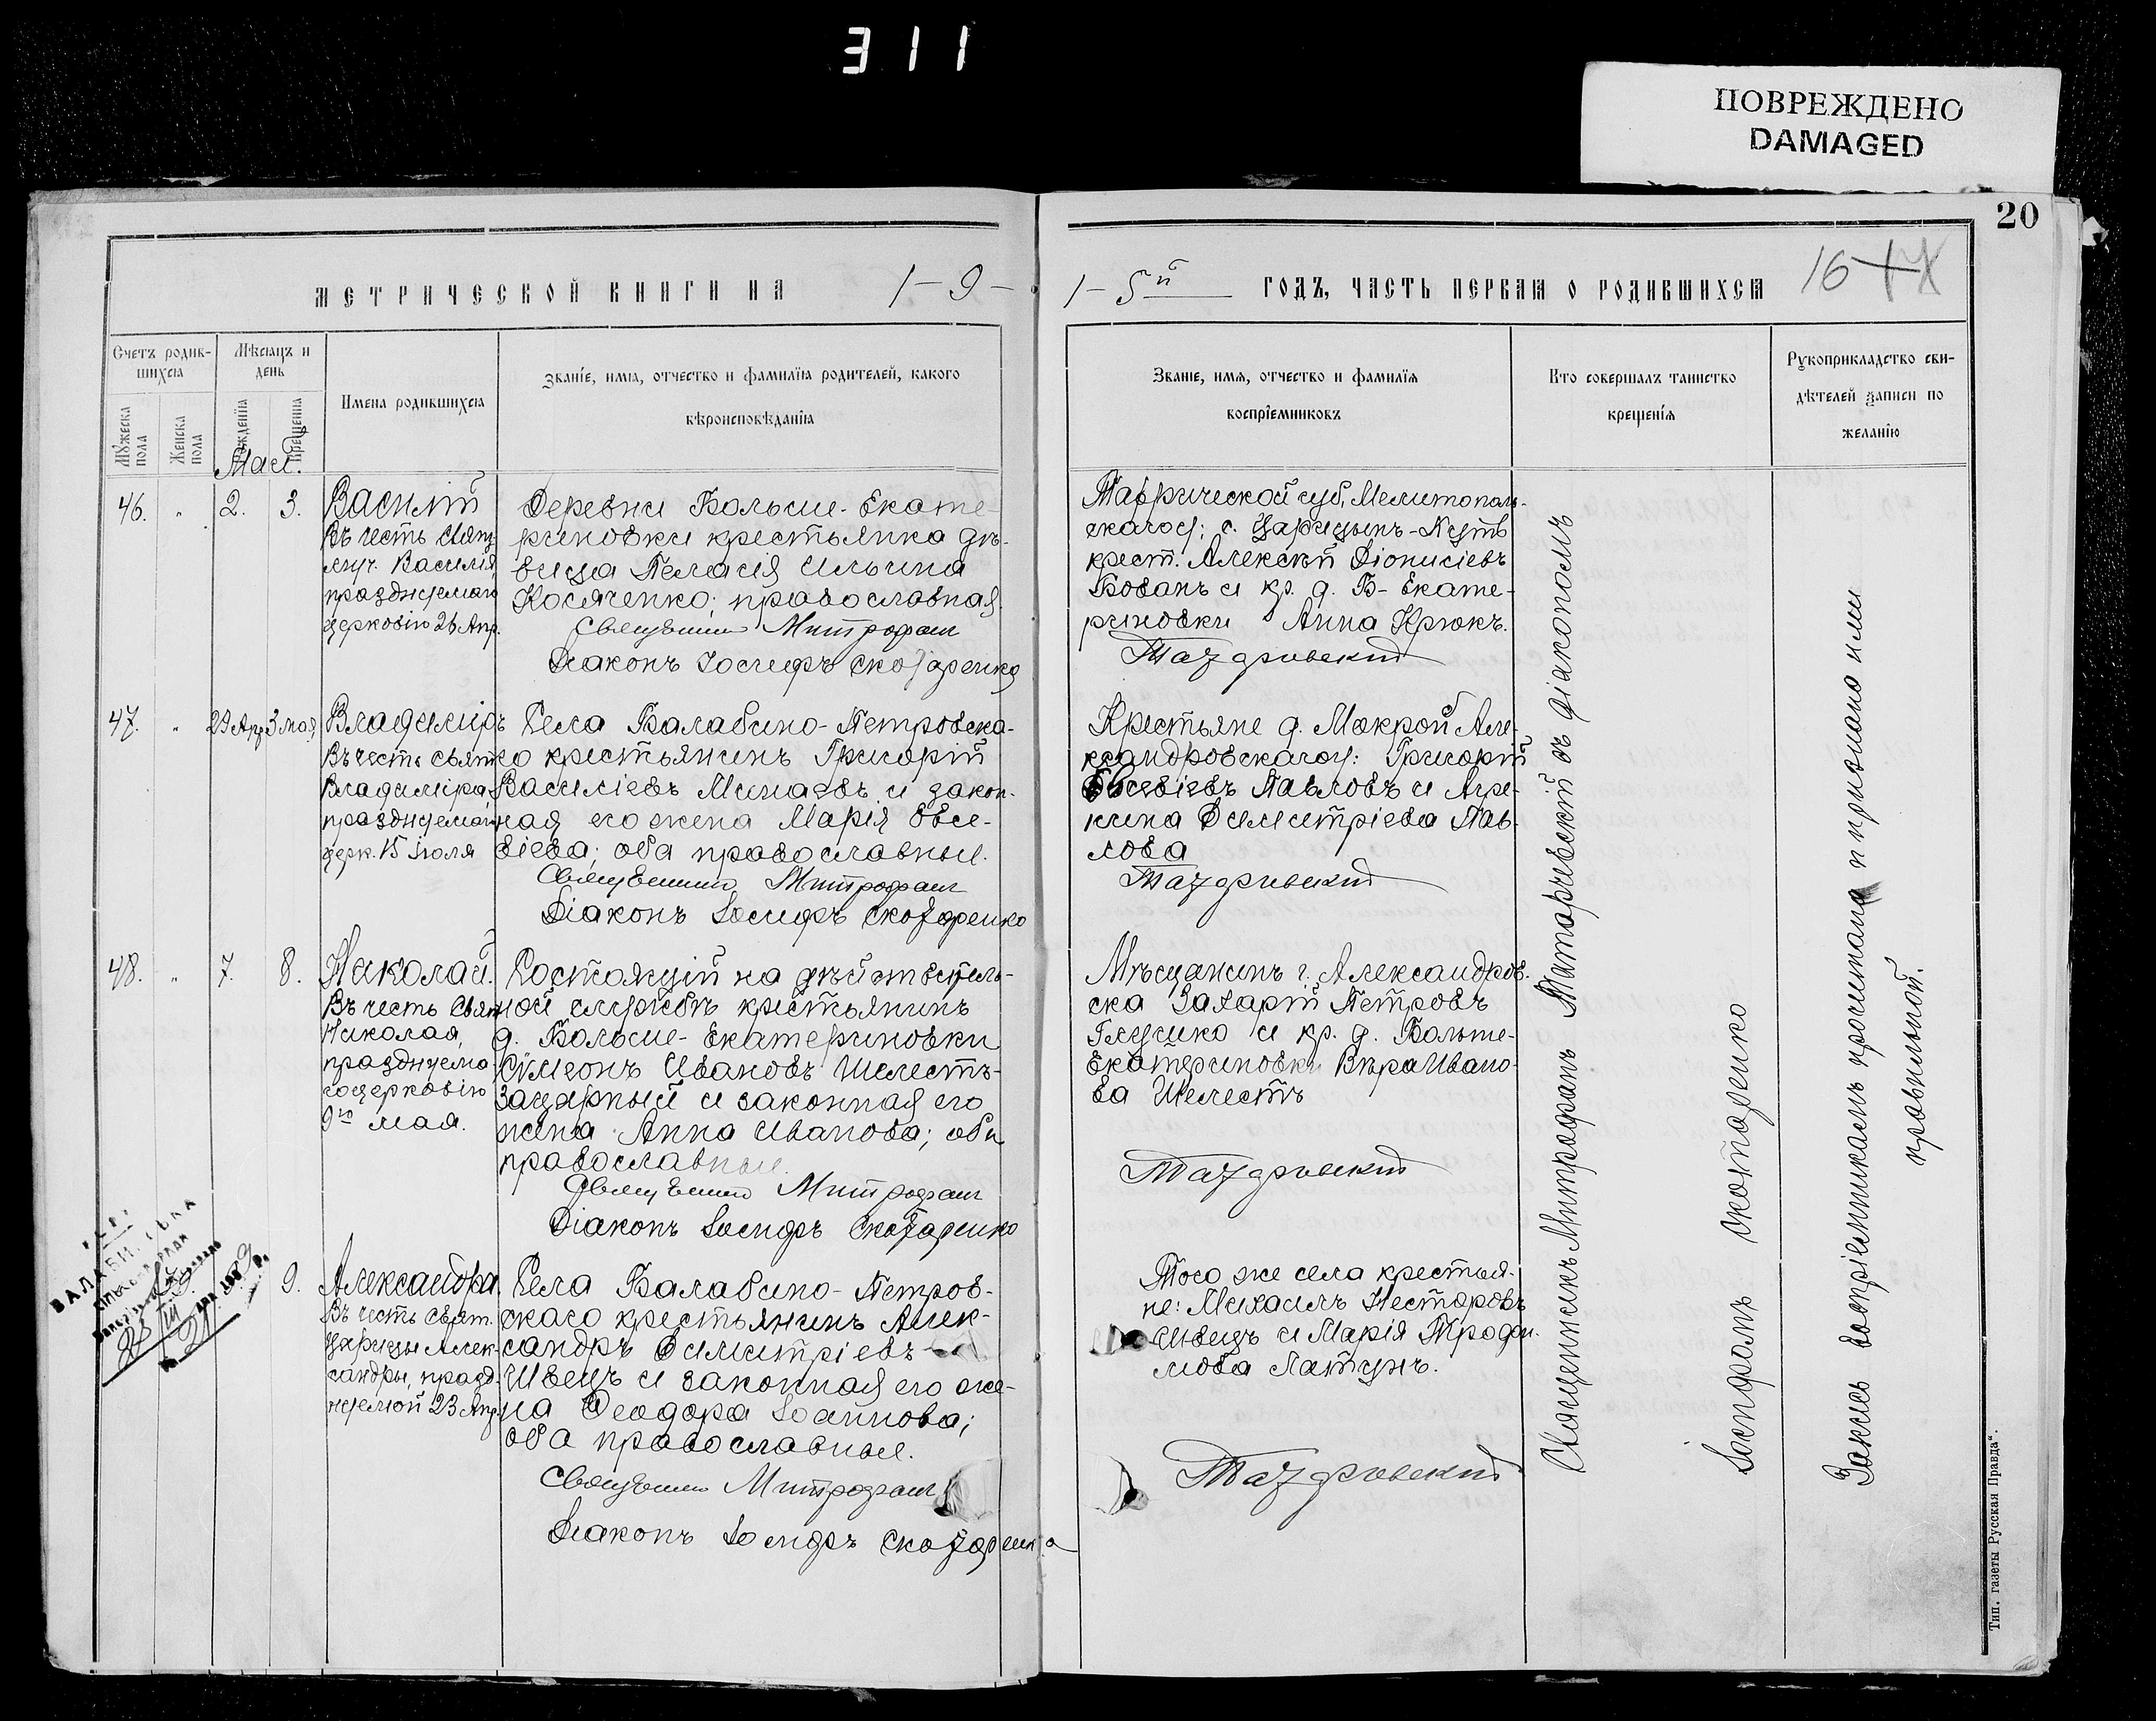 311
ПОВРЕЖДЕНО
DAMAGED
20
МЕТРИЧЕСКОЙ КНИГИ НА 1-9-
1-5й ГОДЪ, ЧАСТЬ ПЕРВАЯ О РОДИВШИХСЯ
16
Счетъ родив-
шихся
Мѣсяцъ и
день
Мꙋжеска
пола
Женска
пола
Рожденія
Крещенія
Имена родившихся
Званіе, имя, отчество и фамилія родителей, какого
вѣроисповѣданія
Званіе, имя, отчество и фамилія
воспріемниковъ
Кто совершалъ таинство
крещенія
Рꙋкоприкладство сви-
дѣтелей записи по
желанію
Май.
46. " 2. 3. Василій
Въ честь Свящ
муч. Василія,
празднуемаго
церковію 26 Апр.
Деревни Больше-Екате-
риновки крестьянка дѣ-
вица Пелагія Ильина
Косяченко; православная.
Священникъ Митрофанъ
Діаконъ Іосифъ Скотаренко
Таврической губ., Мелитополь-
скаго у: с. Царицынъ-Кутъ
крест. Алексѣй Діонисіевъ
Бованъ и кр. д. Б-Екате-
риновки Анна Крюкъ.
47. " 29 Апр 3 мая Владиміръ
Въ честь Свят
Владиміра,
празднуемаго
церк. 15 іюля
Села Балабино-Петровска-
го крестьянинъ Григорій
Василіевъ Минаевъ и закон-
ная его жена Марія Евсе-
віева; оба православные.
Священникъ Митрофанъ
Діаконъ Іосифъ Скотаренко
Крестьяне д. Мокрой Але-
ксандровскаго у: Григорій
Евсевіевъ Павловъ и Агре-
пина Димитріева Пав-
лова
48. " 7. 8. Николай.
Въ честь Свят
Николая,
празднуема-
го церковію
9го мая.
Состоящій на дѣйствитель-
ной службѣ крестьянинъ
д. Больше-Екатериновки
Сѵмеонъ Ивановъ Шелестъ-
Зацарный и законная его
жена Анна Иванова; оба
православные.
Священникъ Митрофанъ
Діаконъ Іосифъ Скотаренко
Мѣщанинъ г. Александров-
ска Захарій Петровъ
Глушко и кр. д. Больше-
Екатериновки Вѣра Ивано-
ва Шелестъ
9. Александра.
Въ честь Свят.
Царицы Алек-
сандры, празд-
нуемой 23 Апр.
Села Балабино-Петров-
скаго крестьянинъ Алек-
сандръ Димитріевъ
Швецъ и законная его же-
на Ѳеодора Іоаннова;
оба православные.
Священникъ Митрофанъ
Діаконъ Іосифъ Скотаренко
Того же села крестья-
не: Михаилъ Несторовъ
Швецъ и Марія Трофи-
мова Латунъ.
Священникъ Митрофанъ съ діакономъ
Іосифомъ Скотаренко
Запись воспріемникамъ прочитана и признана ими
правильной.
Тип. газеты Русская Правда".